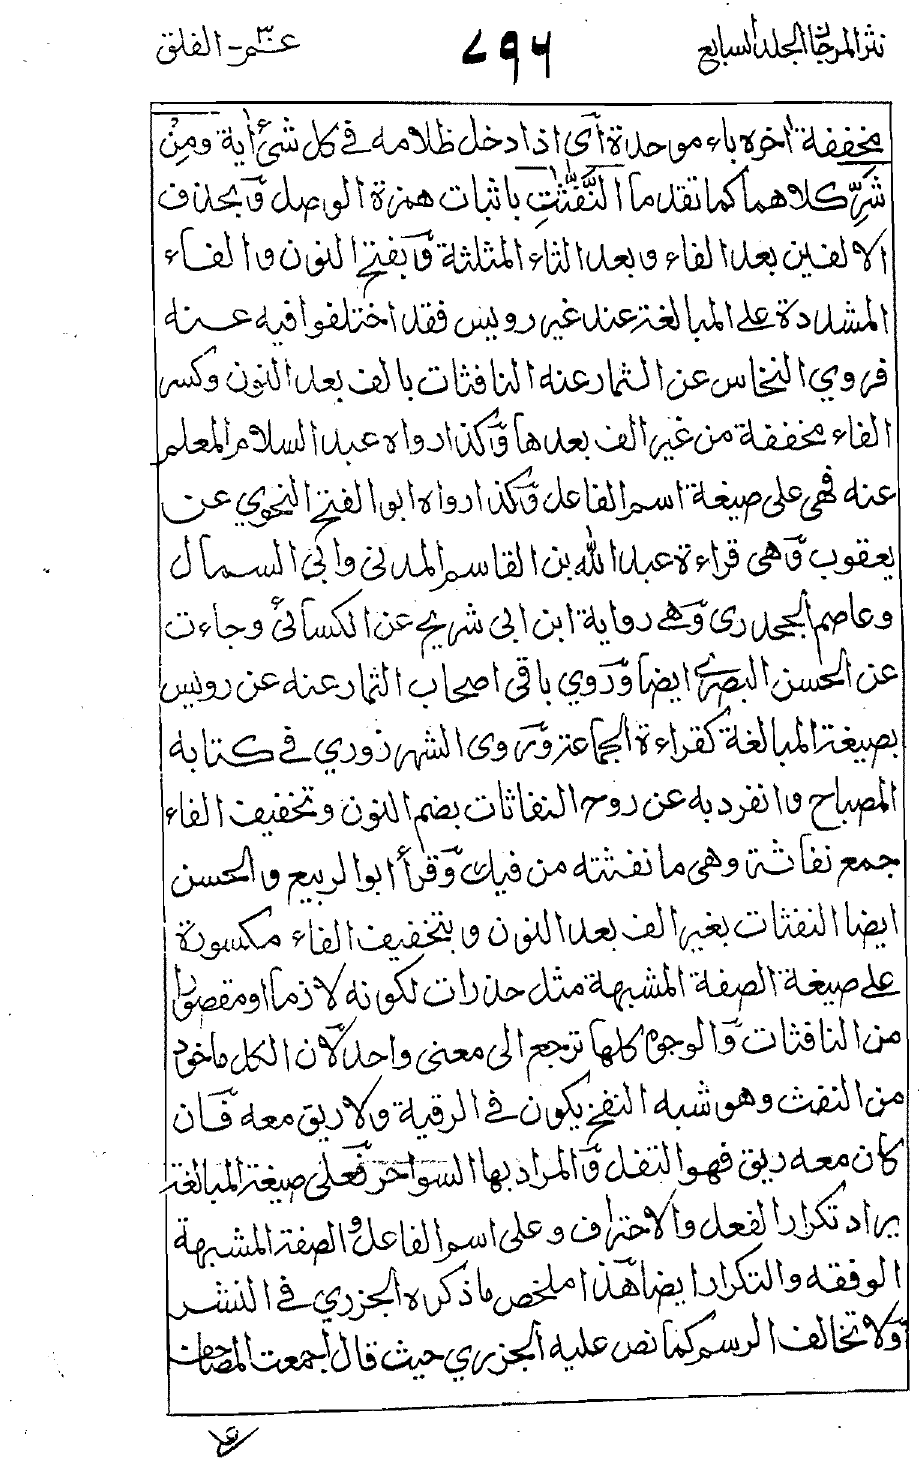 نثر المرجان الجلد السابع ٧٩٦ عـٓم - الفلق
مخففة اخره باء موحدة أى اذا دخل ظلامه فى كل شئ اية ومِنْ
شَرِّ كلاهما كما تقدما النَّفّٰثٰتِ باثبات همزة الوصل وبحذف
الالفين بعد الفاء وبعد الثاء المثلثة وبفتح النون والفاء
المشددة على المبالغة عند غير رويس فقد اختلفوا فيه عنه
فروي النخاس عن الثمار عنه النافثات بالف بعد النون وكسر
الفاء مخففة من غير الف بعدها وكذا رواه عبد السلام المعلم
عنه فهى على صيغة اسم الفاعل وكذا رواه ابو الفتح النحوي عن
يعقوب وهى قراءة عبد الله بن القاسم المدنى وابى السمال
وعاصم الجحدرى وهے رواية ابن ابى شريح عن الكسائى وجاءت
عن الحسن البصرے ايضا وروي باقى اصحاب الثمار عنه عن رويس
بصيغة المبالغة كقراءة الجماعة وروى الشهرزوري فى كتابه
المصباح وانفرد به عن روح النفاثات بضم النون وتخفيف الفاء
جمع نفاثة وهى ما نفثته من فيك وقرأ ابو الربيع والحسن
ايضا النفثات بغير الف بعد النون وبتخفيف الفاء مكسورة
على صيغة الصفة المشبهة مثل حذرات لكونه لازما او مقصورا
من النافثات والوجوه كلها ترجع الى معنى واحد لان الكل ماخوذ
من النفث وهو شبه النفخ يكون فى الرقية ولا ريق معه فان
كان معه ريق فهو التفل والمراد بها السواحر فعلى صيغة المبالغة
يراد تكرار الفعل والاحتراف وعلى اسم الفاعل والصفة المشبهة
الوفقه والتكرار ايضا هذا ملخص ما ذكره الجزري فى النشر
ولا تخالف الرسم كما نص عليه الجزري حيث قال اجمعت المصاحف